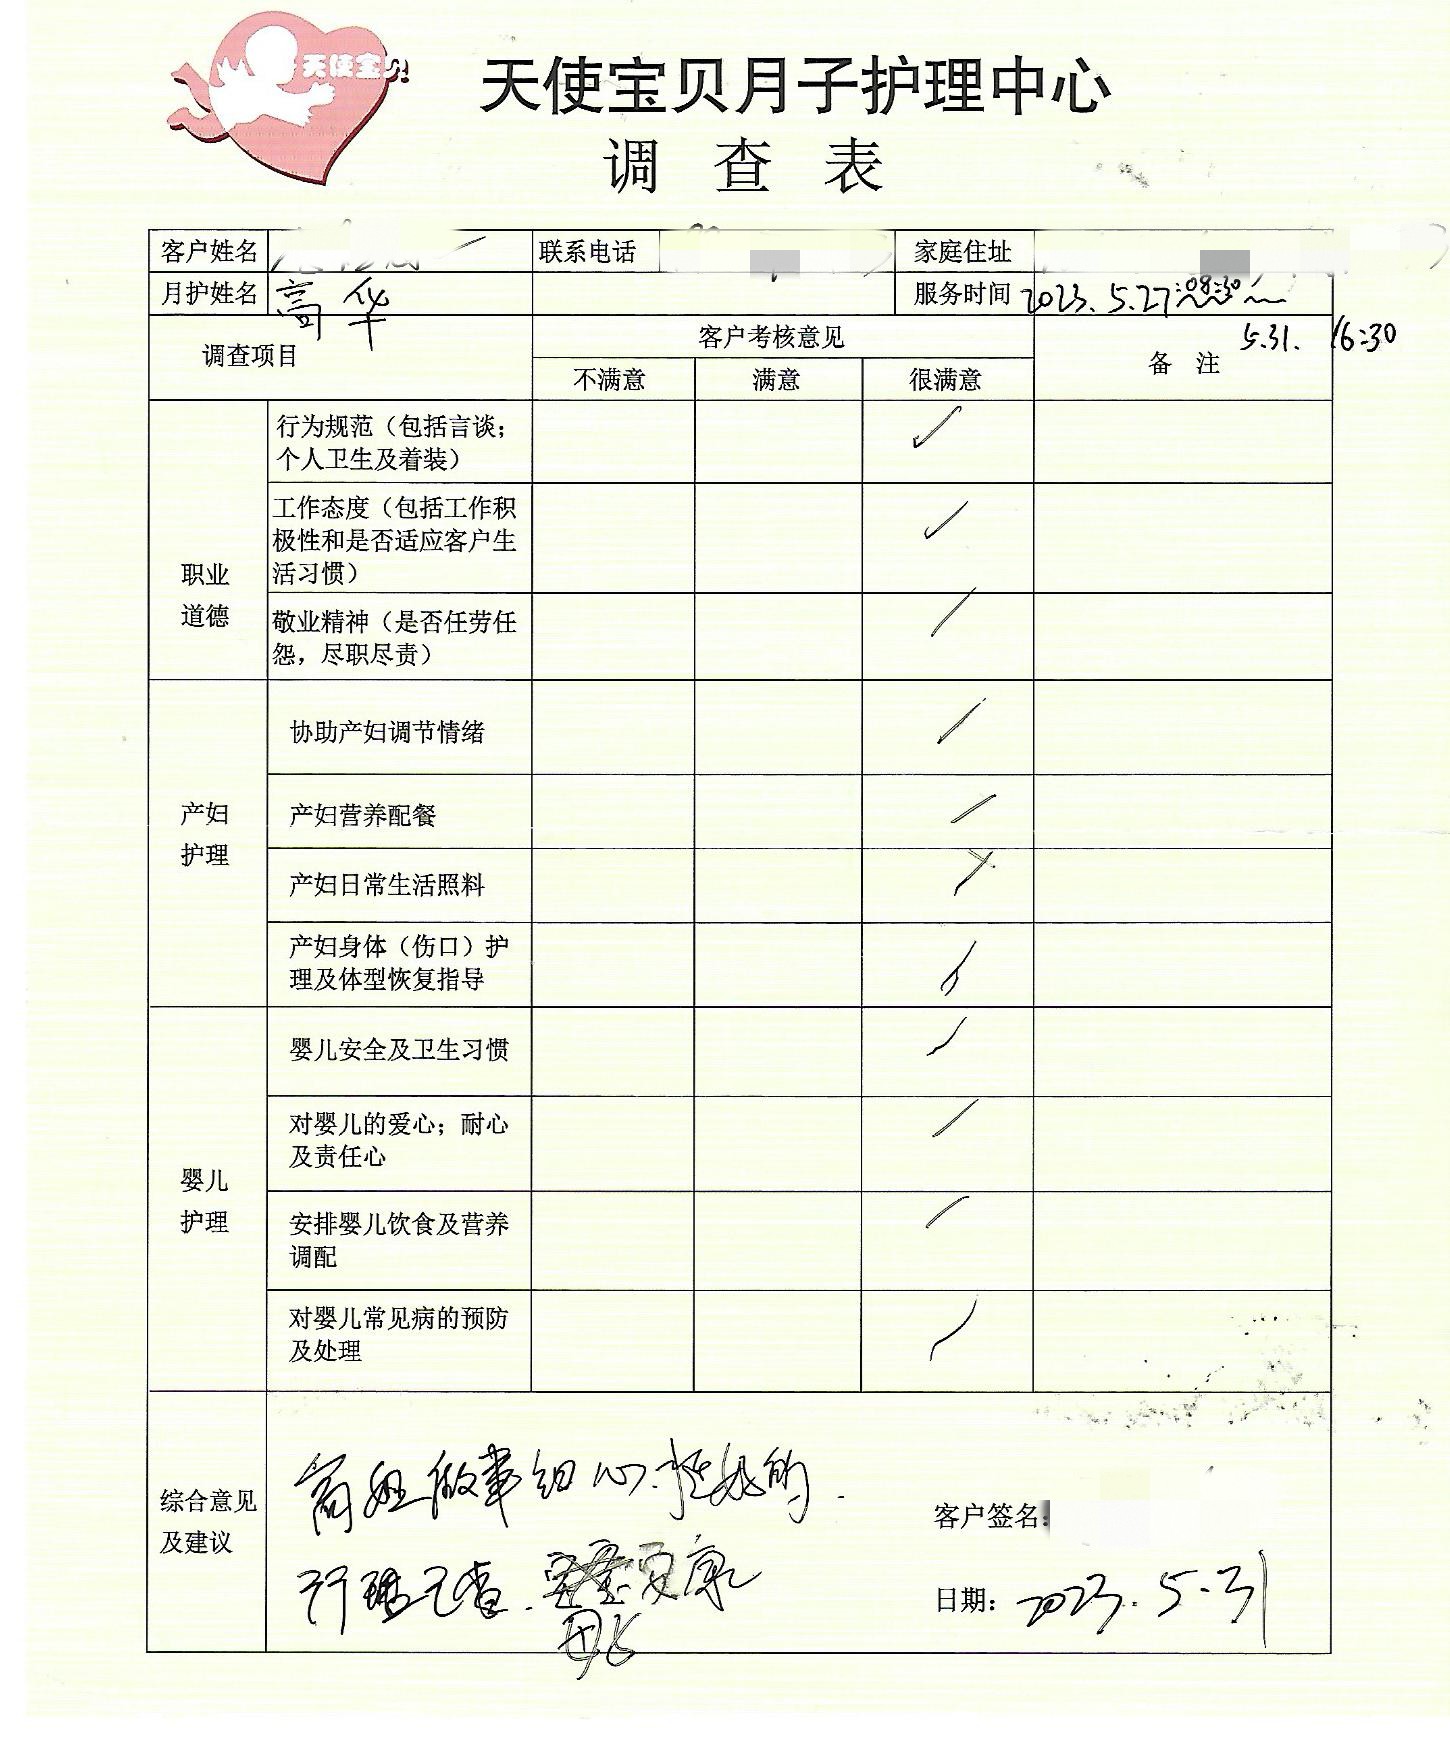 天使宝贝
天使宝贝月子护理中心
调 查 表
客户姓名 联系电话 家庭住址
月护姓名 高华 服务时间 2023.5.27.08:30~
5.31. 16:30
调查项目 客户考核意见 备 注
不满意 满意 很满意
职业
道德
行为规范（包括言谈；
个人卫生及着装）
工作态度（包括工作积
极性和是否适应客户生
活习惯）
敬业精神（是否任劳任
怨，尽职尽责）
产妇
护理
协助产妇调节情绪
产妇营养配餐
产妇日常生活照料
产妇身体（伤口）护
理及体型恢复指导
婴儿
护理
婴儿安全及卫生习惯
对婴儿的爱心；耐心
及责任心
安排婴儿饮食及营养
调配
对婴儿常见病的预防
及处理
综合意见
及建议
高姐做事细心.挺好的.
行李已查. 安康
客户签名：
日期：2023.5.31